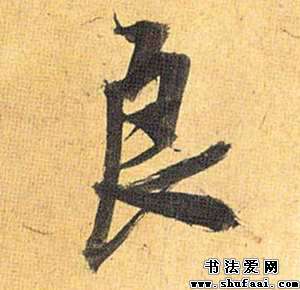 良
书法爱网
www.shufaai.com